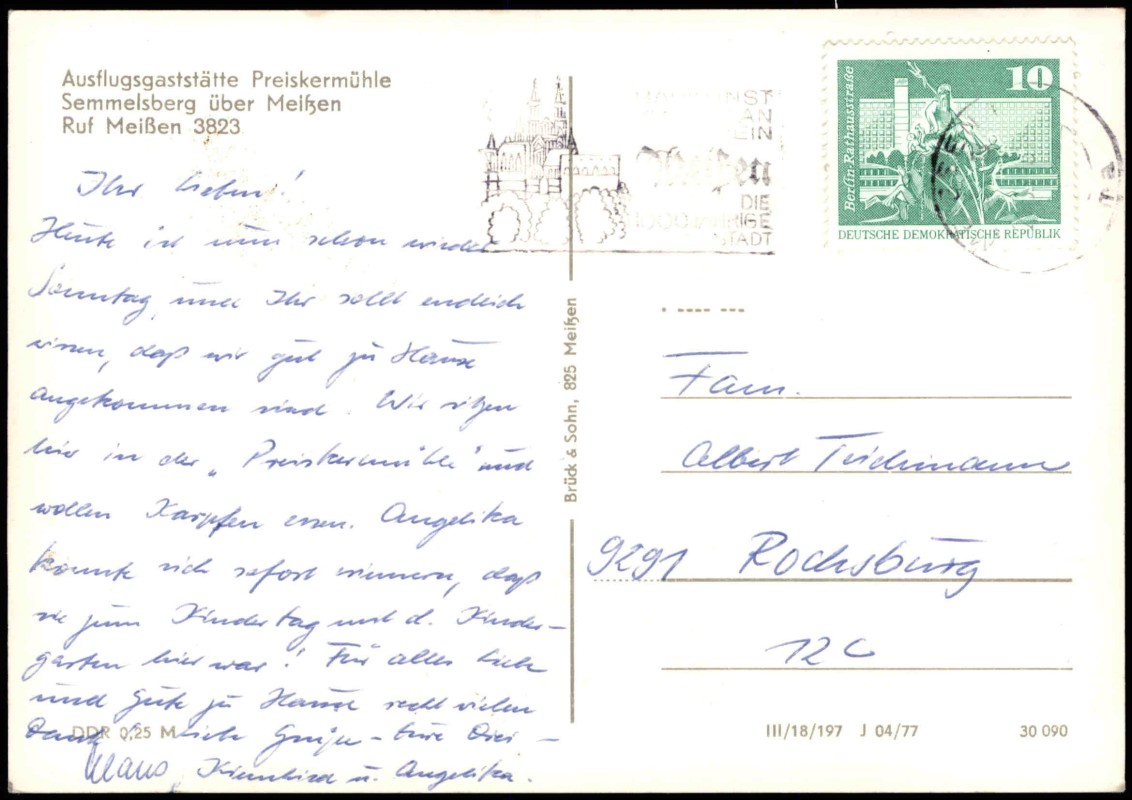 Ausflugsgaststätte Preiskermühle
Semmelsberg über Meißen
Ruf Meißen 3823
Ihr Lieben!
Heute ist nun schon wieder
Sonntag, und Ihr sollt endlich
wissen, daß wir gut zu Hause
angekommen sind. Wir sitzen
hier in der „Preiskermühle" und
wollen Karpfen essen. Angelika
konnte sich sofort erinnern, daß
sie zum Kindertag mit d. Kinder-
garten hier war! Für alles Liebe
und Gute zu Hause recht vielen
Dank. Liebe Grüße – Eure Drei –
Klaus, u. Angelika.
DDR 0,25 M
Brück & Sohn, 825 Meißen
EIN
Meißen
DIE
1000 JÄHRIGE
STADT
10
Berlin-Rathausstraße
DEUTSCHE DEMOKRATISCHE REPUBLIK
Fam.
Albert Teichmann
9291 Rochsburg
12c
III/18/197 J 04/77
30 090